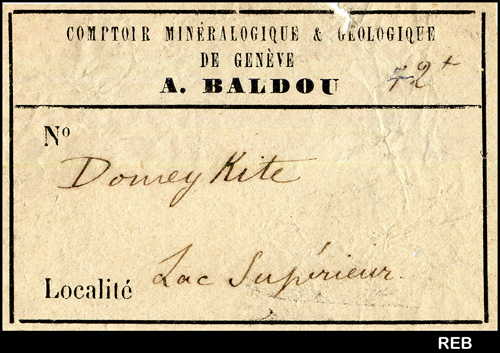 COMPTOIR MINÉRALOGIQUE & GÉOLOGIQUE
DE GENÈVE
A. BALDOU
72+
No
Domey Kite
Localité Lac Supérieur.
REB